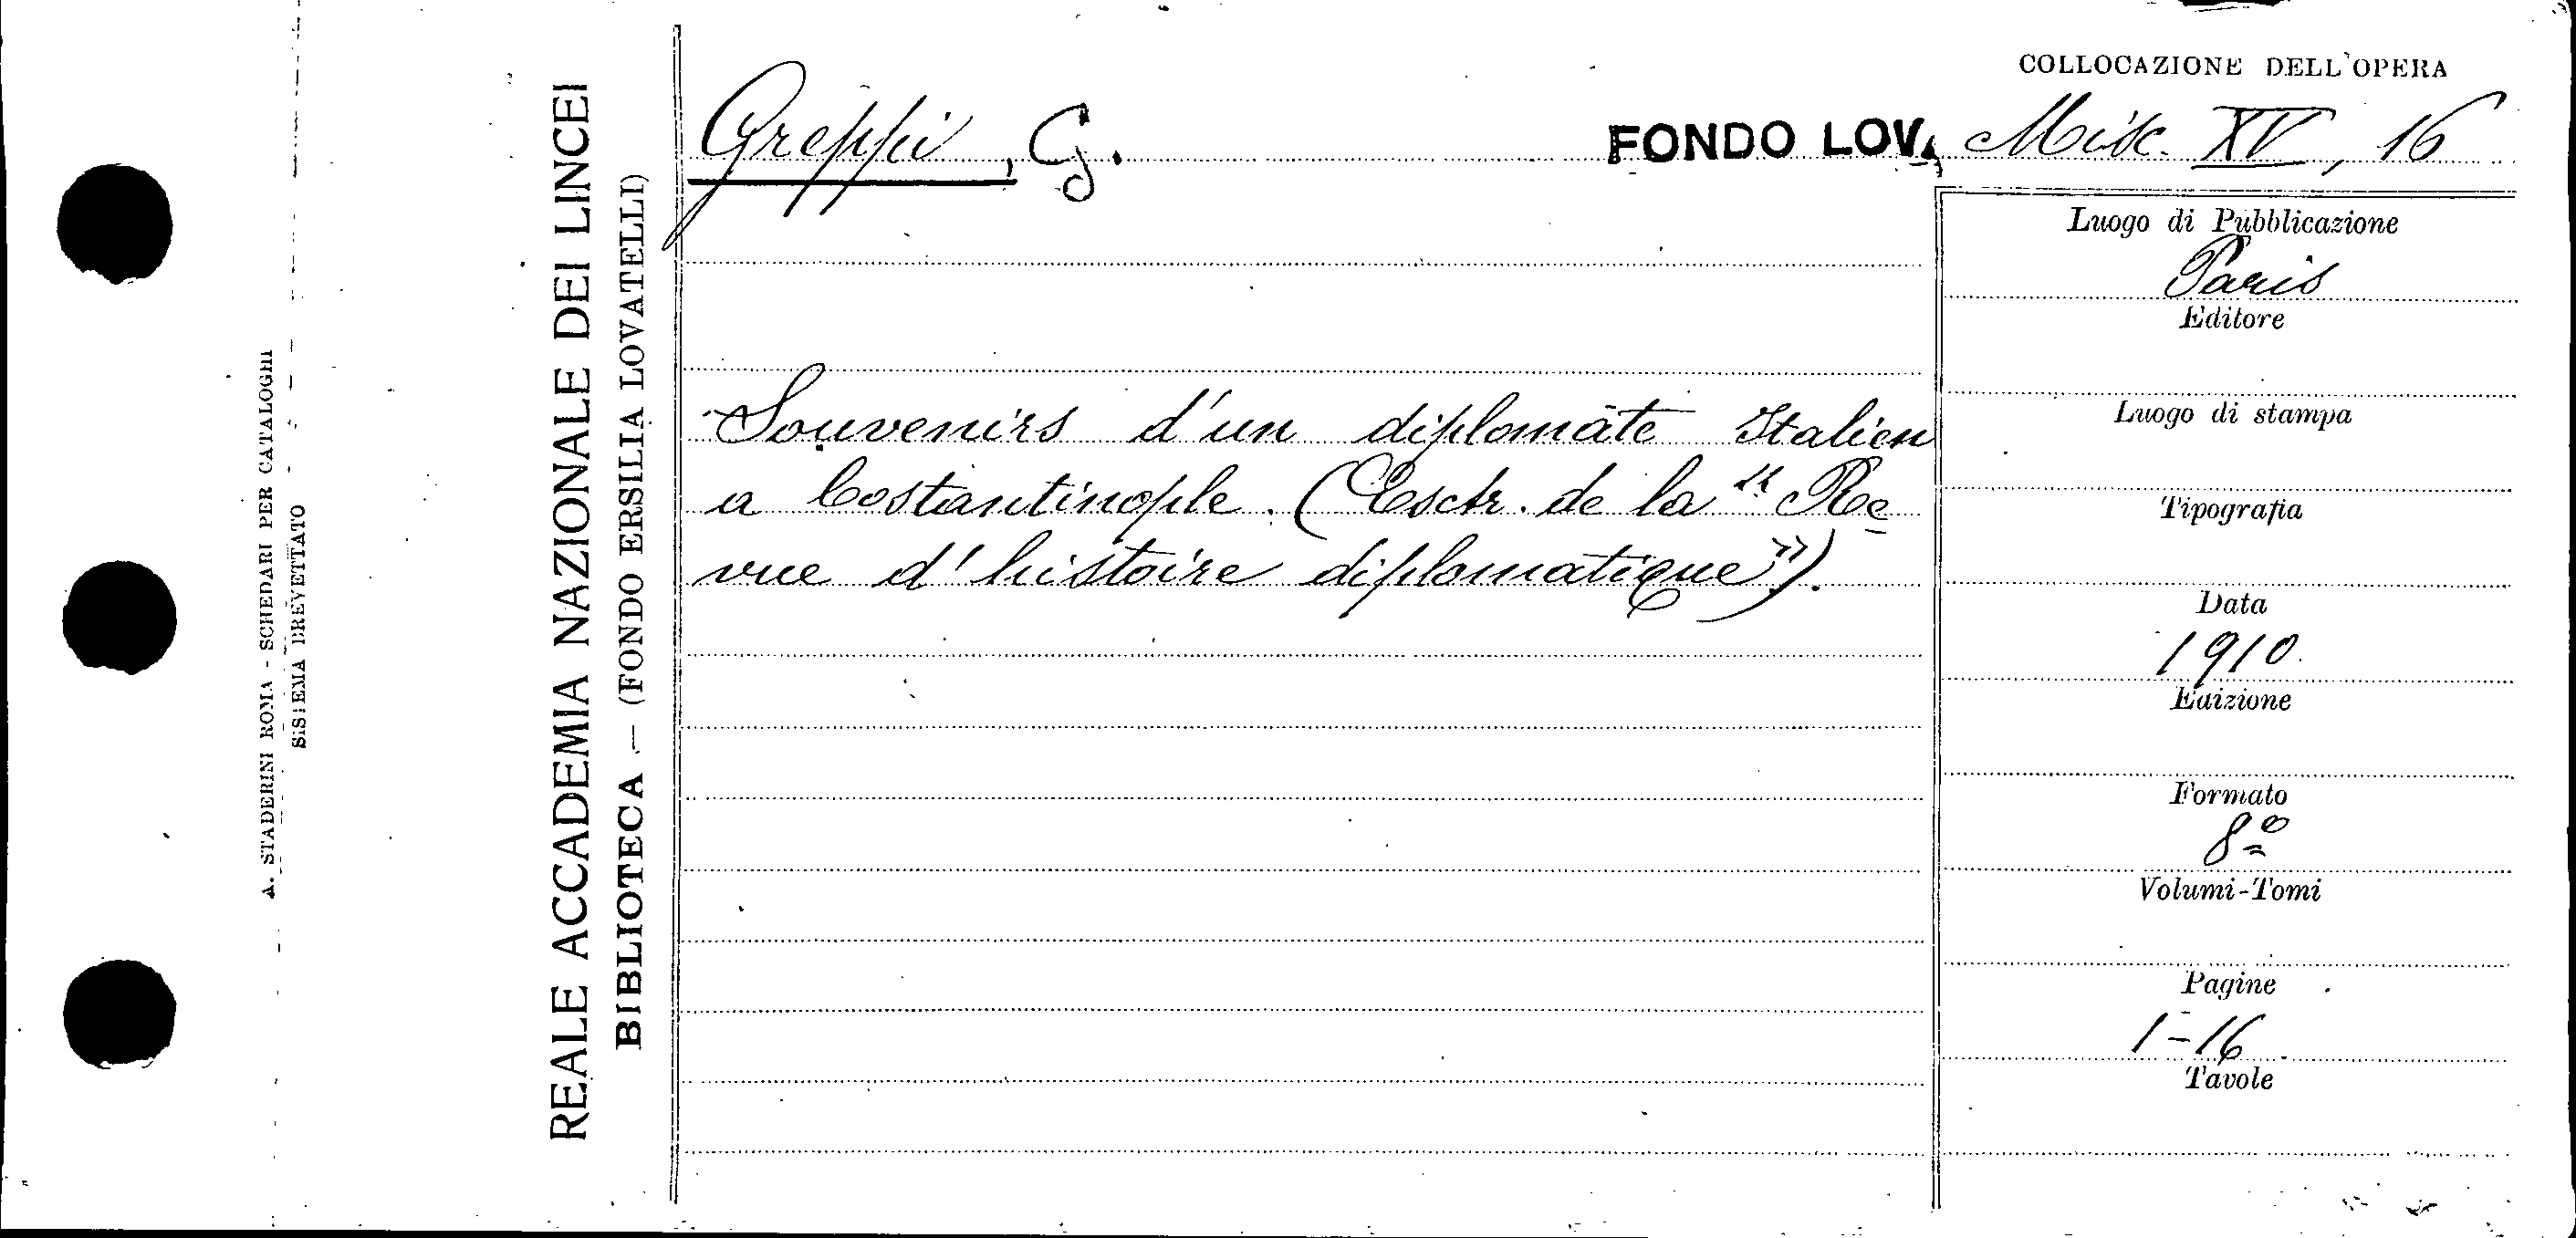 A. STADERINI ROMA - SCHEDARI PER CATALOGHI
SISTEMA BREVETTATO
REALE ACCADEMIA NAZIONALE DEI LINCEI
BIBLIOTECA — (FONDO ERSILIA LOVATELLI)
COLLOCAZIONE DELL'OPERA
Greppi, G.
FONDO LOV. Misc. XV, 16
Souvenirs d'un diplomate Italien
a Costantinople. (Extr. de la "Re
vue d'histoire diplomatique").
Luogo di Pubblicazione
Paris
Editore
Luogo di stampa
Tipografia
Data
1910.
Edizione
Formato
8º
Volumi-Tomi
Pagine
1-16
Tavole